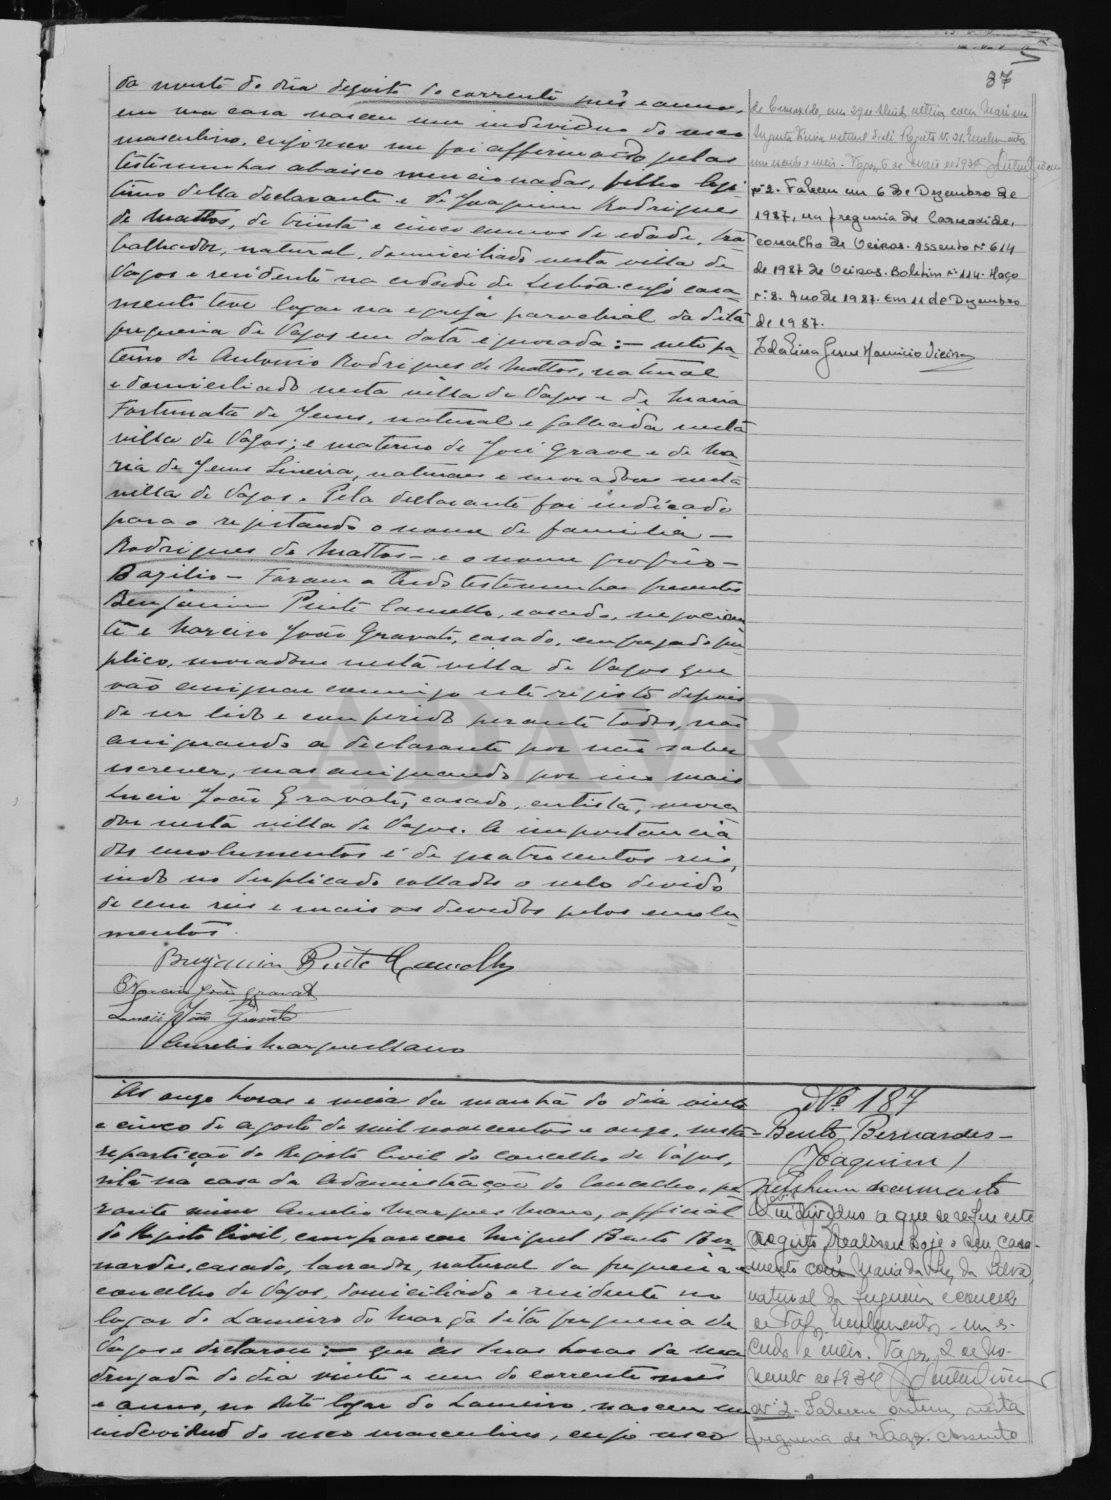 87
da noute do dia desoito do corrente mês e anno,
em uma casa nasceu um individuo do sexo
masculino, cujo sexo me foi affirmado pelas
testemunhas abaixo mencionadas, filho legi-
timo della declarante e de Joaquim Rodrigues
de Mattos, de trinta e cinco annos de edade, tra
balhador, natural, domiciliado nesta villa de
Vagos e residente na cidade de Lisbôa cujo casa-
mento teve logar na egreja parochial da dita
freguesia de Vagos em data ignorada: — neto pa-
terno de Antonio Rodrigues de Mattos, natural
e domiciliado nesta villa de Vagos e de Maria
Fortunata de Jesus, natural e fallecida nesta
villa de Vagos; e materno de José Grave e de Ma-
ria de Jesus, naturaes e moradores nesta
villa de Vagos. Pela declarante foi indicado
para o registando o nome de familia —
Rodrigues de Mattos — e o nome proprio —
Bazilio — Foram a tudo testemunhas presentes
Benjamim Pinto Camello, casado, negocian
te e Narciso João Gravato, casado, empregado pu
blico, moradores nesta villa de Vagos que
vão assignar commigo este registo depois
de ser lido e conferido perante todos, não
assignando a declarante por não saber
escrever, mas assignando por isso mais
Lucio João Gravato, casado, artista, mora
dor nesta villa de Vagos. A importancia
dos emolumentos é de quatrocentos reis,
indo no duplicado collados o sello devido
de cem reis e mais os devidos pelos emolu-
mentos.
Benjamim Pinto Camello
João Gravato
Lucio João Gravato
Aurelio Marques Mano
de Carnaxide, em 29 de Abril ultimo com Maria
Augusta natural d'ali. Registo Nº 31. Emolumentos
um escudo e meio. Vagos, 6 de Maio de 1934
nº 2. Faleceu em 6 de Dezembro de
1987, na freguesia de Carnaxide,
concelho de Oeiras. Assento nº 614
de 1987 de Oeiras. Boletim nº 114. Maço
nº 8. Ano de 1987. Em 11 de Dezembro
de 1987.
Idalina Jesus Mauricio Vieira
ADAVR
As onze horas e meia da manhã do dia vinte
e cinco de agosto de mil novecentos e onze, nesta
repartição do Registo Civil do concelho de Vagos,
sita na casa da Administração do Concelho, pe
rante mim Aurelio Marques Mano, official
do Registo Civil, compareceu Miguel Bento Ber-
nardes, casado, lavrador, natural da freguesia e
concelho de Vagos, domiciliado e residente no
logar do Lameiro do Mar da dita freguesia de
Vagos e declarou: — que ás duas horas da ma
drugada do dia vinte e um do corrente mês
e anno, no dito logar do Lameiro, nasceu um
individuo do sexo masculino, cujo sexo
Nº 187
Bento Bernardes —
(Joaquim)
Nenhum documento
O individuo a que se refere este
registo, realisou hoje o seu casa-
mento com Maria da Luz da Silva,
natural da freguesia e concelho
de Vagos. Emolumentos - um es-
cudo e meio. Vagos, 2 de No-
vembro de 1934
Nº 2. Faleceu ontem, nesta
freguesia de Vagos. Assento